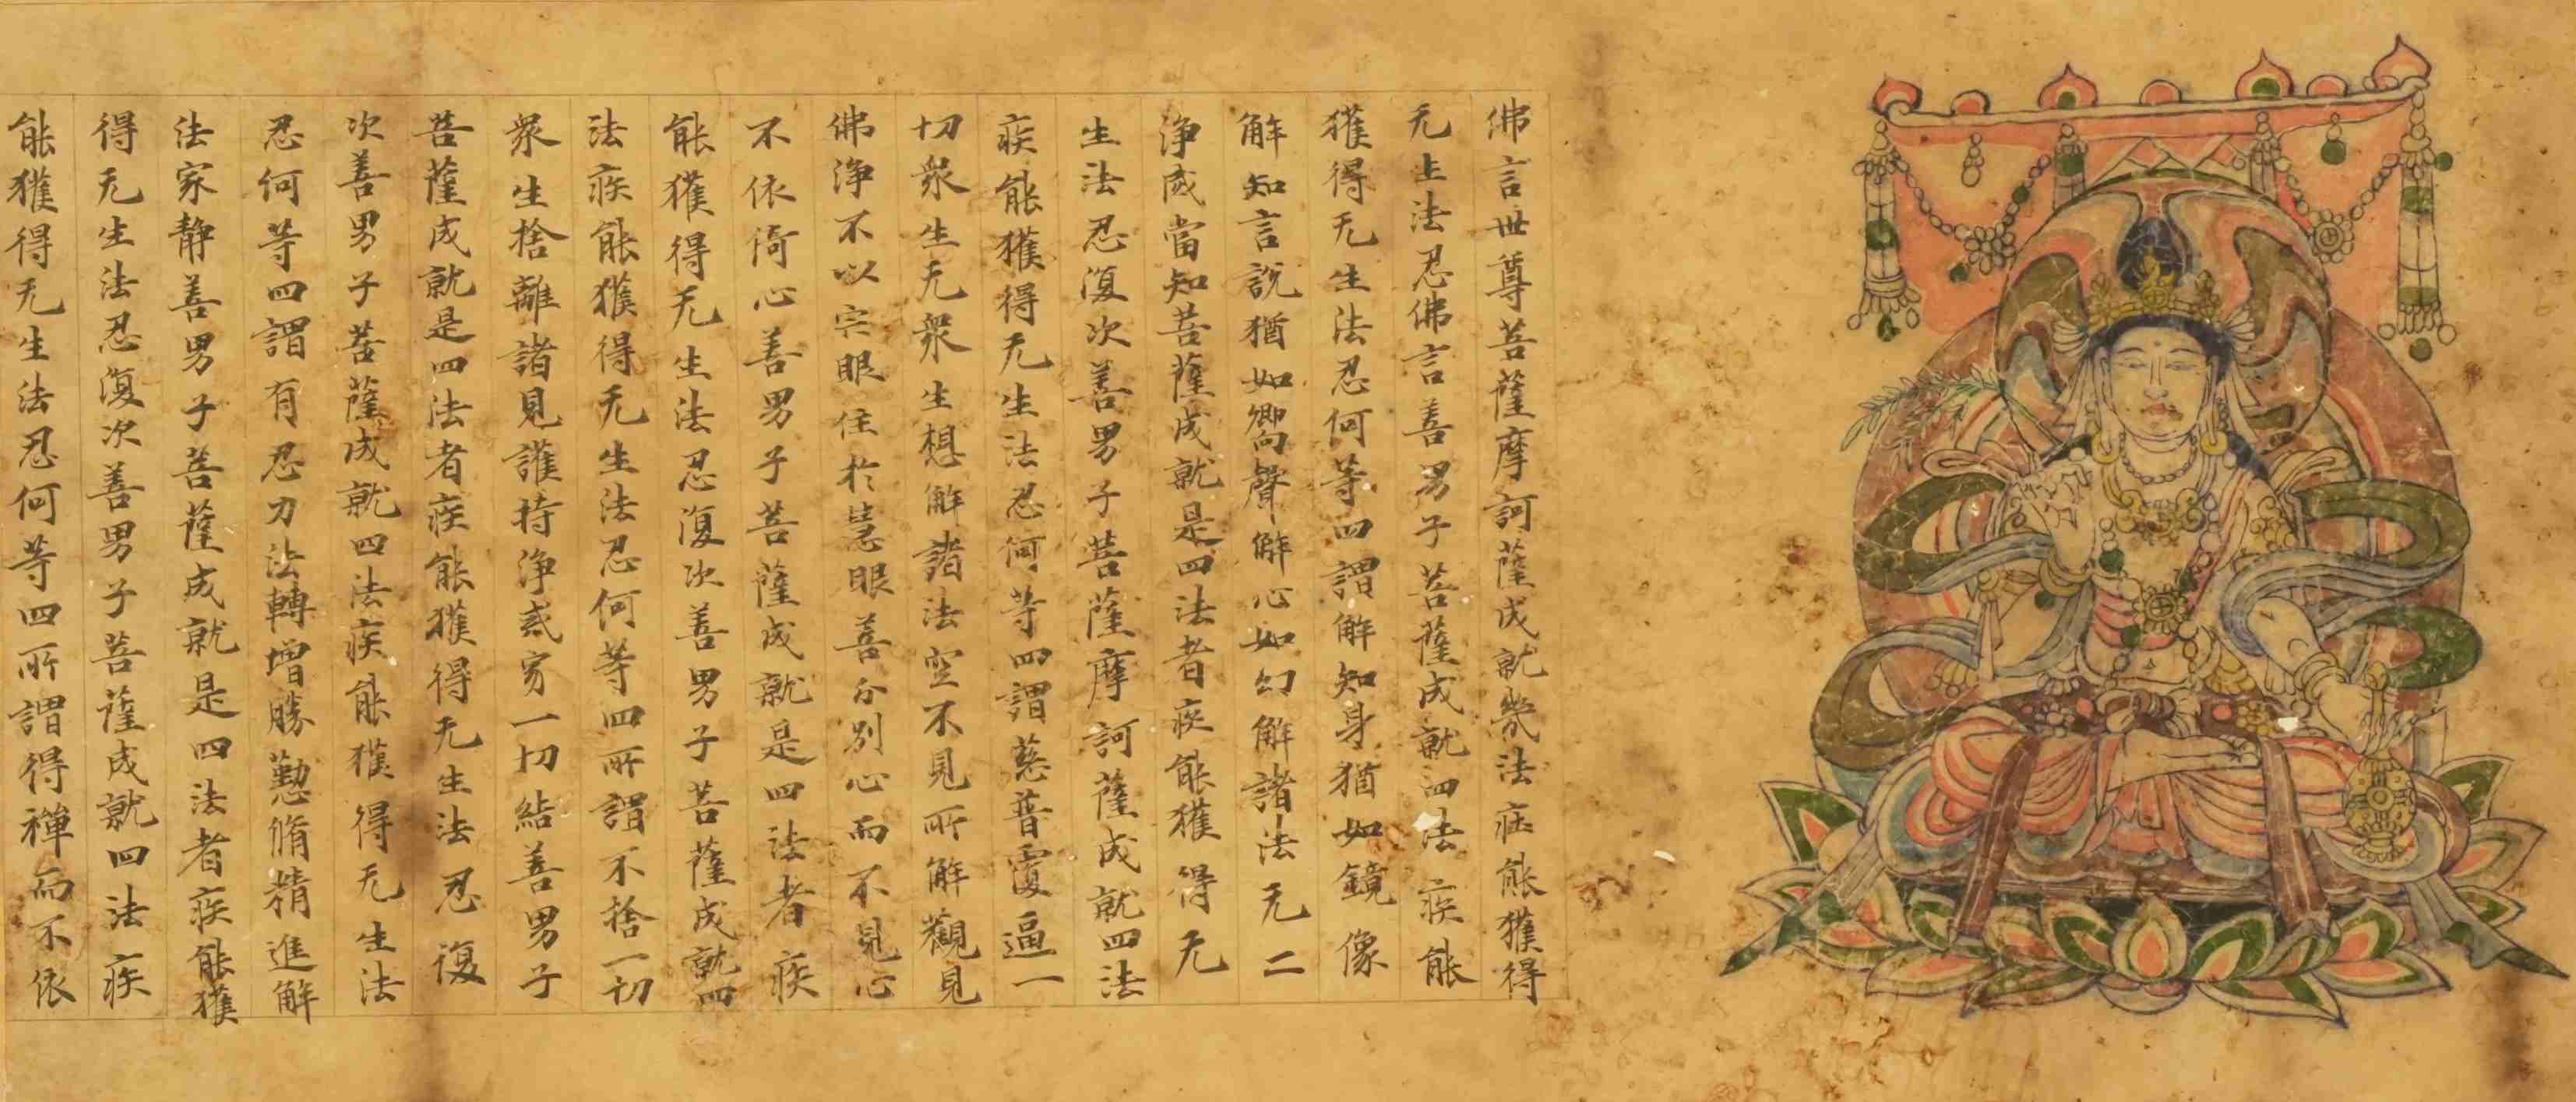 佛言世尊菩薩摩訶薩成就幾法疾能獲得
无生法忍佛言善男子菩薩成就四法疾能
獲得无生法忍何等四謂解知身猶如鏡像
解知言說猶如嚮聲解心如幻解諸法无二
淨威當知菩薩成就是四法者疾能獲得无
生法忍復次善男子菩薩摩訶薩成就四法
疾能獲得无生法忍何等四謂慈普覆逼一
切衆生无衆生想解諸法空不見所解觀見
佛淨不以宍眼住於慧眼善分別心而不見心
不依倚心善男子菩薩成就是四法者疾
能獲得无生法忍復次善男子菩薩成就四
法疾能獲得无生法忍何等四所謂不捨一切
衆生捨離諸見護持淨一切結善男子
菩薩成就是四法者疾能獲得无生法忍復
次善男子菩薩成就四法疾能獲得无生法
忍何等四謂有忍忍刀法轉增勝懃脩精進解
法家靜善男子菩薩成就是四法者疾能獲
得无生法忍復次善男子菩薩成就四法疾
能獲得无生法忍何等四所謂得禪而不依